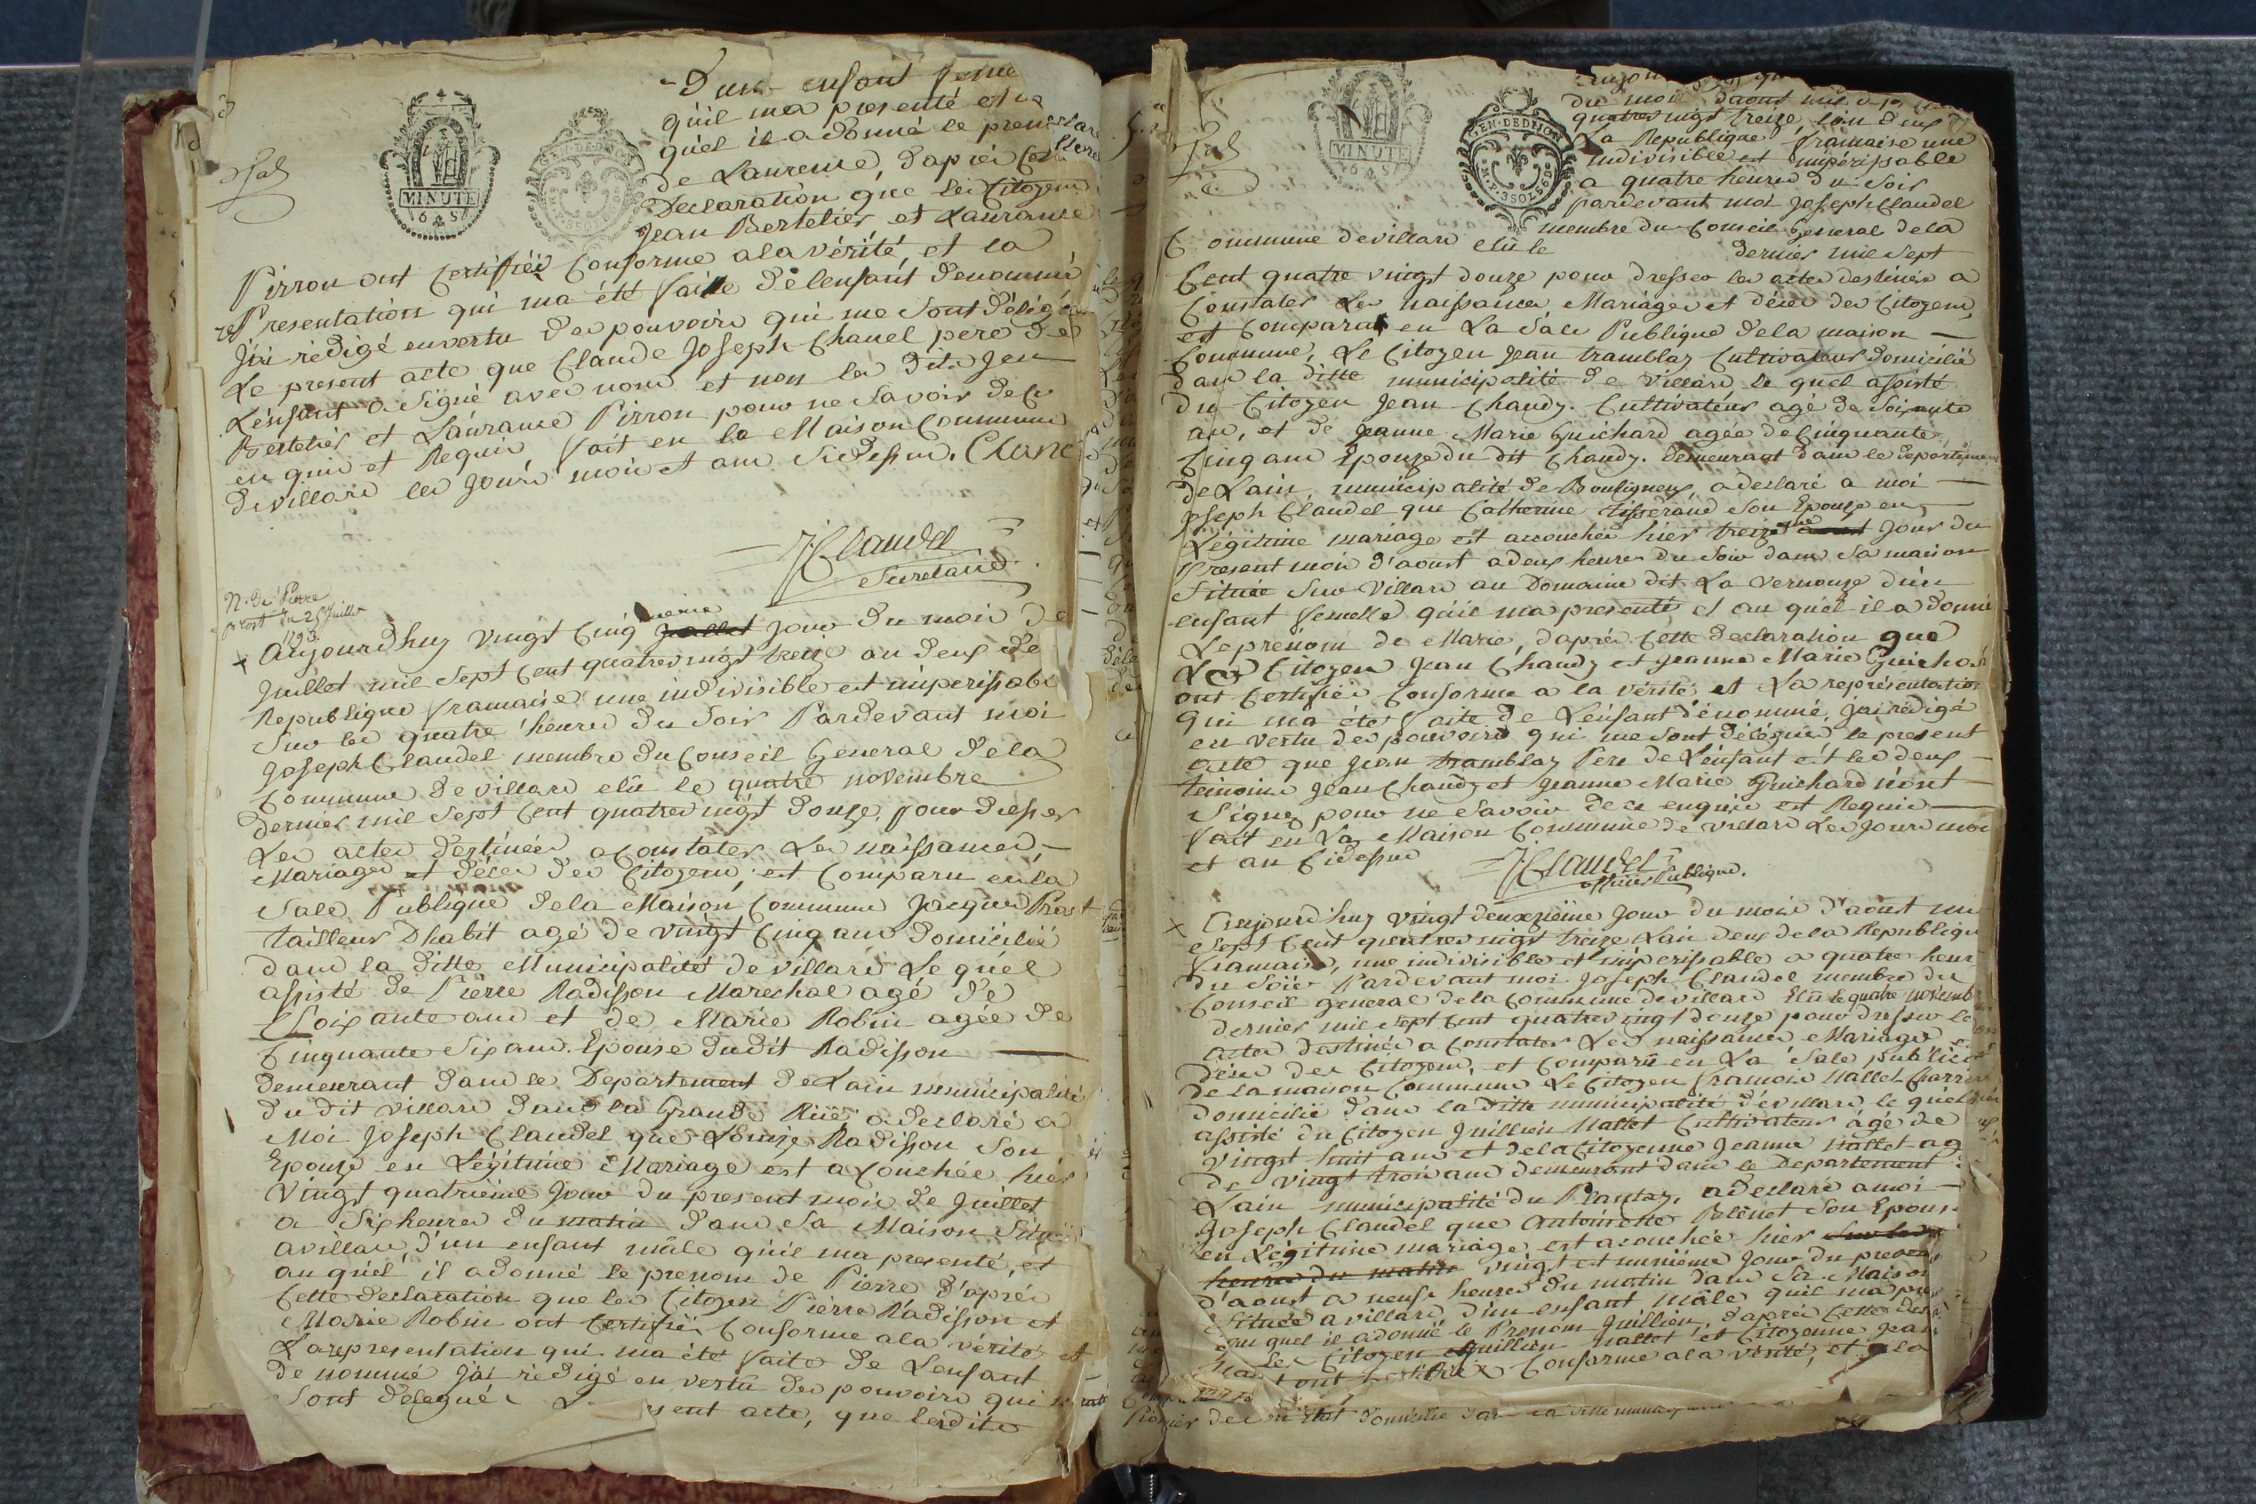 D'un enfant feme
qu'il ma presenté et
quel il a donné le prenom
de Laurence, d'aprés cette
Declaration que les Citoyens
Jean Bertelier et Laurance
Pirron ont Certifiée Conforme a la vérité, et la
représentation qui ma été faitte de l'enfant denommé
J'ai rédigé en vertu des pouvoirs qui me sont délégués
Le present acte que Claude Joseph Chanel pere de
L'enfant a signé avec nous et non les dits Jean
Bertelier et Laurance Pirron pour ne savoir de ce
enquis et Requis fait en la Maison Commune
de villard les jours mois et ans Sidessus. Chane
J Claudel
Secretaire
MINUTE
6 S
GEN. DE DIJON
N. de Pierre
Prost du 25 Juillet
1793.
Aujourdhuy vingt cinq ieme jour du mois de
Juillet mil sept cent quatrevingt treize an deux de
Republique francaise une indivisible et imperissable
Sur les quatre heures du soir Pardevant moi
Joseph Claudel membre du Conseil General de la
Commune de villard elû le quatre novembre
dernier mil sept cent quatrevingt douze, pour dresser
Les actes destinées a Constater Les naissances,
Mariages et déces des Citoyens, est Comparu en la
Sale Publique de la Maison Commune Jacque Prost
tailleur Dhabit agé de vingt cinq ans domicilié
dans la ditte Municipalité de villard Le quel
assisté de Pierre Radisson Marechal agé de
Soixante ans et de Marie Robin agée de
Cinquante six ans. Epouse dudit Radisson
demeurant dans le Departement de Lain municipalité
du dit villard dans la Grande Rüe a declaré a
Moi Joseph Claudel que Louise Radisson Son
Epouse en Légitime Mariage est acouchée hier
Vingt quatrieme Jour du present mois de Juillet
a Six heures du matin dans Sa Maison Située
a villard, d'un enfant mâle qu'il ma presenté, et
au quel il a donné le prenom de Pierre d'aprés
Cette declaration que les Citoyen Pierre Radisson et
Marie Robin ont Certifiée Conforme a la vérité et
La representation qui ma été faite de L'enfant
de nommé J'ai rédigé en vertu des pouvoirs qui
Sont délegués sent acte, que les dits
MINUTE
6 S
GEN. DE DIJON
3 SOLS 6 D
du mois daout mil
quatrevingt treize, l'an deux
La Republique francaise une
indivisible et imperissable
a quatre heures du Soir
pardevant moi Joseph Claudel
membre du Conseil General de la
Commune de villard elû le dernier mil sept
Cent quatre vingt douze pour dresser les actes destinés a
Constater Les naissances Mariages et déces des Citoyens
est Comparut en La Sale Publique de la maison
Commune, Le Citoyen Jean tramblay Cultivateur domicilié
dans la ditte municipalité de villard le quel assisté
du Citoyen Jean Chandy. Cultivateur agé de Soixante
ans, et de Jeanne Marie Guichard agée de Cinquante
Cinq ans Epouze du dit Chandy. demeurant dans le departement
de Lain, municipalité de Bouligneux, a declaré a moi
Joseph Claudel que Catherine tisserand Son Epouze en
Légitime mariage est accouchée hier treize jour du
Present mois d'aoust a deux heures du Soir dans Sa maison
Située Sur Villard au Domaine dit La Vernouze d'un
enfant femelle qu'il ma presenté, et au quel il a donné
Le prénom de Marie, d'aprés Cette declaration que
Les Citoyens Jean Chandy et Jeanne Marie Guichard
ont Certifiée Conforme a la vérité et La représentation
Qui ma été faite de L'enfant dénommé, J'ai rédigé
en vertu des pouvoirs qui me sont délégués le present
acte que Jean tramblay Pere de L'enfant et les deux
témoins Jean Chandy et Jeanne Marie Guichard n'ont
Signé, pour ne Savoir de ce enquis et Requis
fait en La Maison Commune de villard Les jours mois
et an Cidessus
J Claudel
officier Publique.
Aujourd'huy vingt deuxzième Jour du mois d'aoust mil
Sept Cent quatrevingt treize Lan deux de la Republique
francaise, une indivisible et imperissable a quatre heur
du Soir Pardevant moi Joseph Claudel membre du
Conseil general de la Commune de villard Elû le quatre novemb
dernier mil sept cent quatrevingt douze pour dresser Les
actes destinés a Constater Les naissances Mariages et
déces des Citoyens, est Comparû en La Sale publique
de la maison Commune Le Citoyen francois Nallet Charron
domicilié dans la ditte municipalité de villard le quel
assisté du Citoyen Jullien Nallet Cultivateur agé de
Vingt huit ans et de la Citoyenne Jeanne Nallet ag
de vingt trois ans demeurant dans le Departement
Lain municipalité du Plantay, a declaré a moi
Joseph Claudel que Antoinette Belluet Son Epous
en Légitime mariage, est acouchée hier
heures du matin vingt et unième Jour du present
d'aoust a neuf heures du matin dans Sa Maison
Située a villard d'un enfant mâle quil ma pre
au quel il a donné le Prenom Juillien, d'aprés Cette de
Les Citoyen Juillien Nallet et Citoyenne Jean
ont Conforme a la vérité, et la